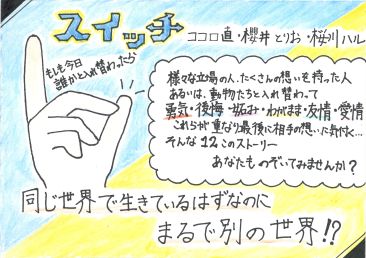 スイッチ
ココロ直・櫻井とりお・桜川ハル
もしも今日
誰かと入れ替わったら
様々な立場の人、たくさんの想いを持った人
あるいは、動物たちと入れ替わって
勇気・後悔・妬み・わがまま・友情・愛情
これらが重なり最後に相手の想いに気付く…
そんな12このストーリー
あなたものぞいてみませんか？
同じ世界で生きているはずなのに
まるで別の世界!?